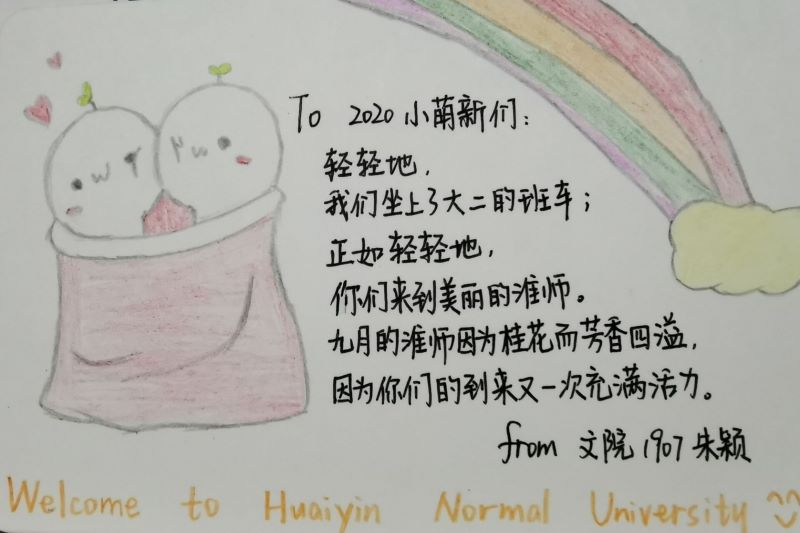 To 2020小萌新们:
轻轻地,
我们坐上了大二的班车;
正如轻轻地,
你们来到美丽的淮师。
九月的淮师因为桂花而芳香四溢,
因为你们的到来又一次充满活力。
from 文院1907朱颖
Welcome to Huaiyin Normal University